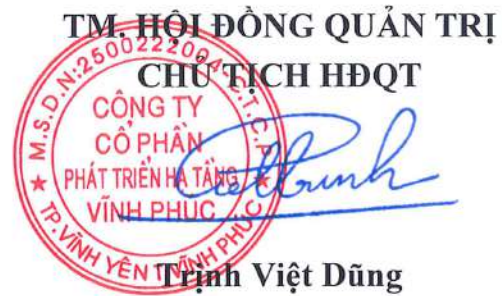 TM. HỘI ĐỒNG QUẢN TRỊ
CHỦ TỊCH HĐQT
M.S.D.N:2500222004-C.T.C.P
CÔNG TY
CỔ PHẦN
PHÁT TRIỂN HẠ TẦNG
VĨNH PHÚC
TP.VĨNH YÊN T.VĨNH PHÚC
Trịnh Việt Dũng